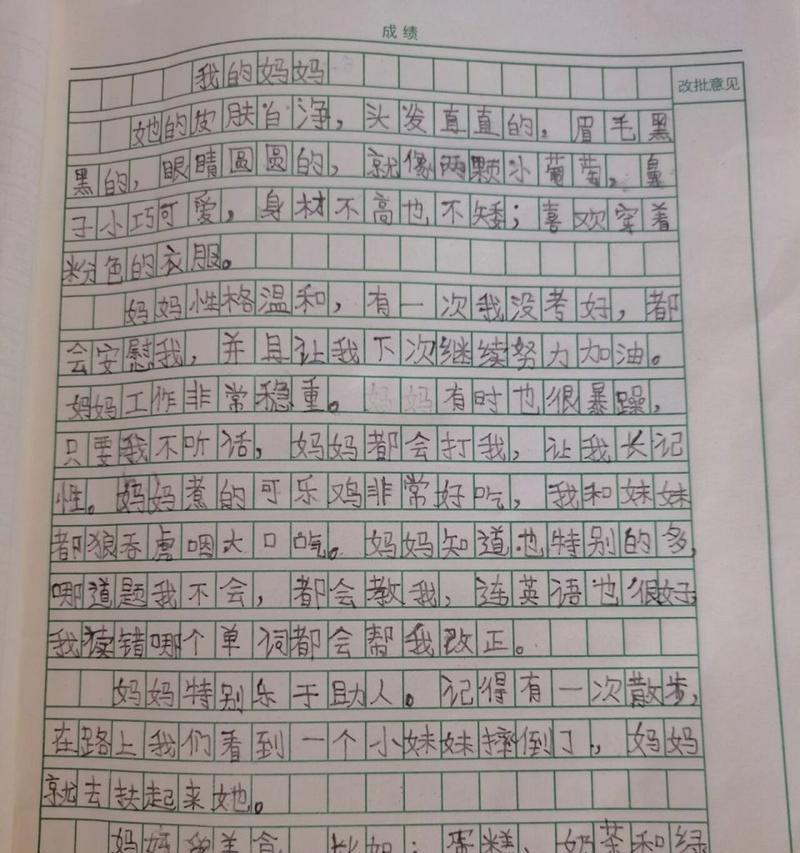 成绩
改批意见
我的妈妈
她的皮肤白净，头发直直的，眉毛黑
黑的，眼睛圆圆的，就像两颗小葡萄，鼻
子小巧可爱，身材不高也不矮；喜欢穿着
粉色的衣服。
妈妈性格温和，有一次我没考好，都
会安慰我，并且让我下次继续努力加油。
妈妈工作非常稳重。妈妈有时也很暴躁，
只要我不听话，妈妈都会打我，让我长记
性。妈妈煮的可乐鸡非常好吃，我和妹妹
都狼吞虎咽大口吃。妈妈知道也特别的多，
哪道题我不会，都会教我，连英语也很好，
我读错哪个单词都会帮我改正。
妈妈特别乐于助人。记得有一次散步，
在路上我们看到一个小妹妹摔倒了，妈妈
就去扶起来她。
妈妈美食，比如：蛋糕、奶茶和绿